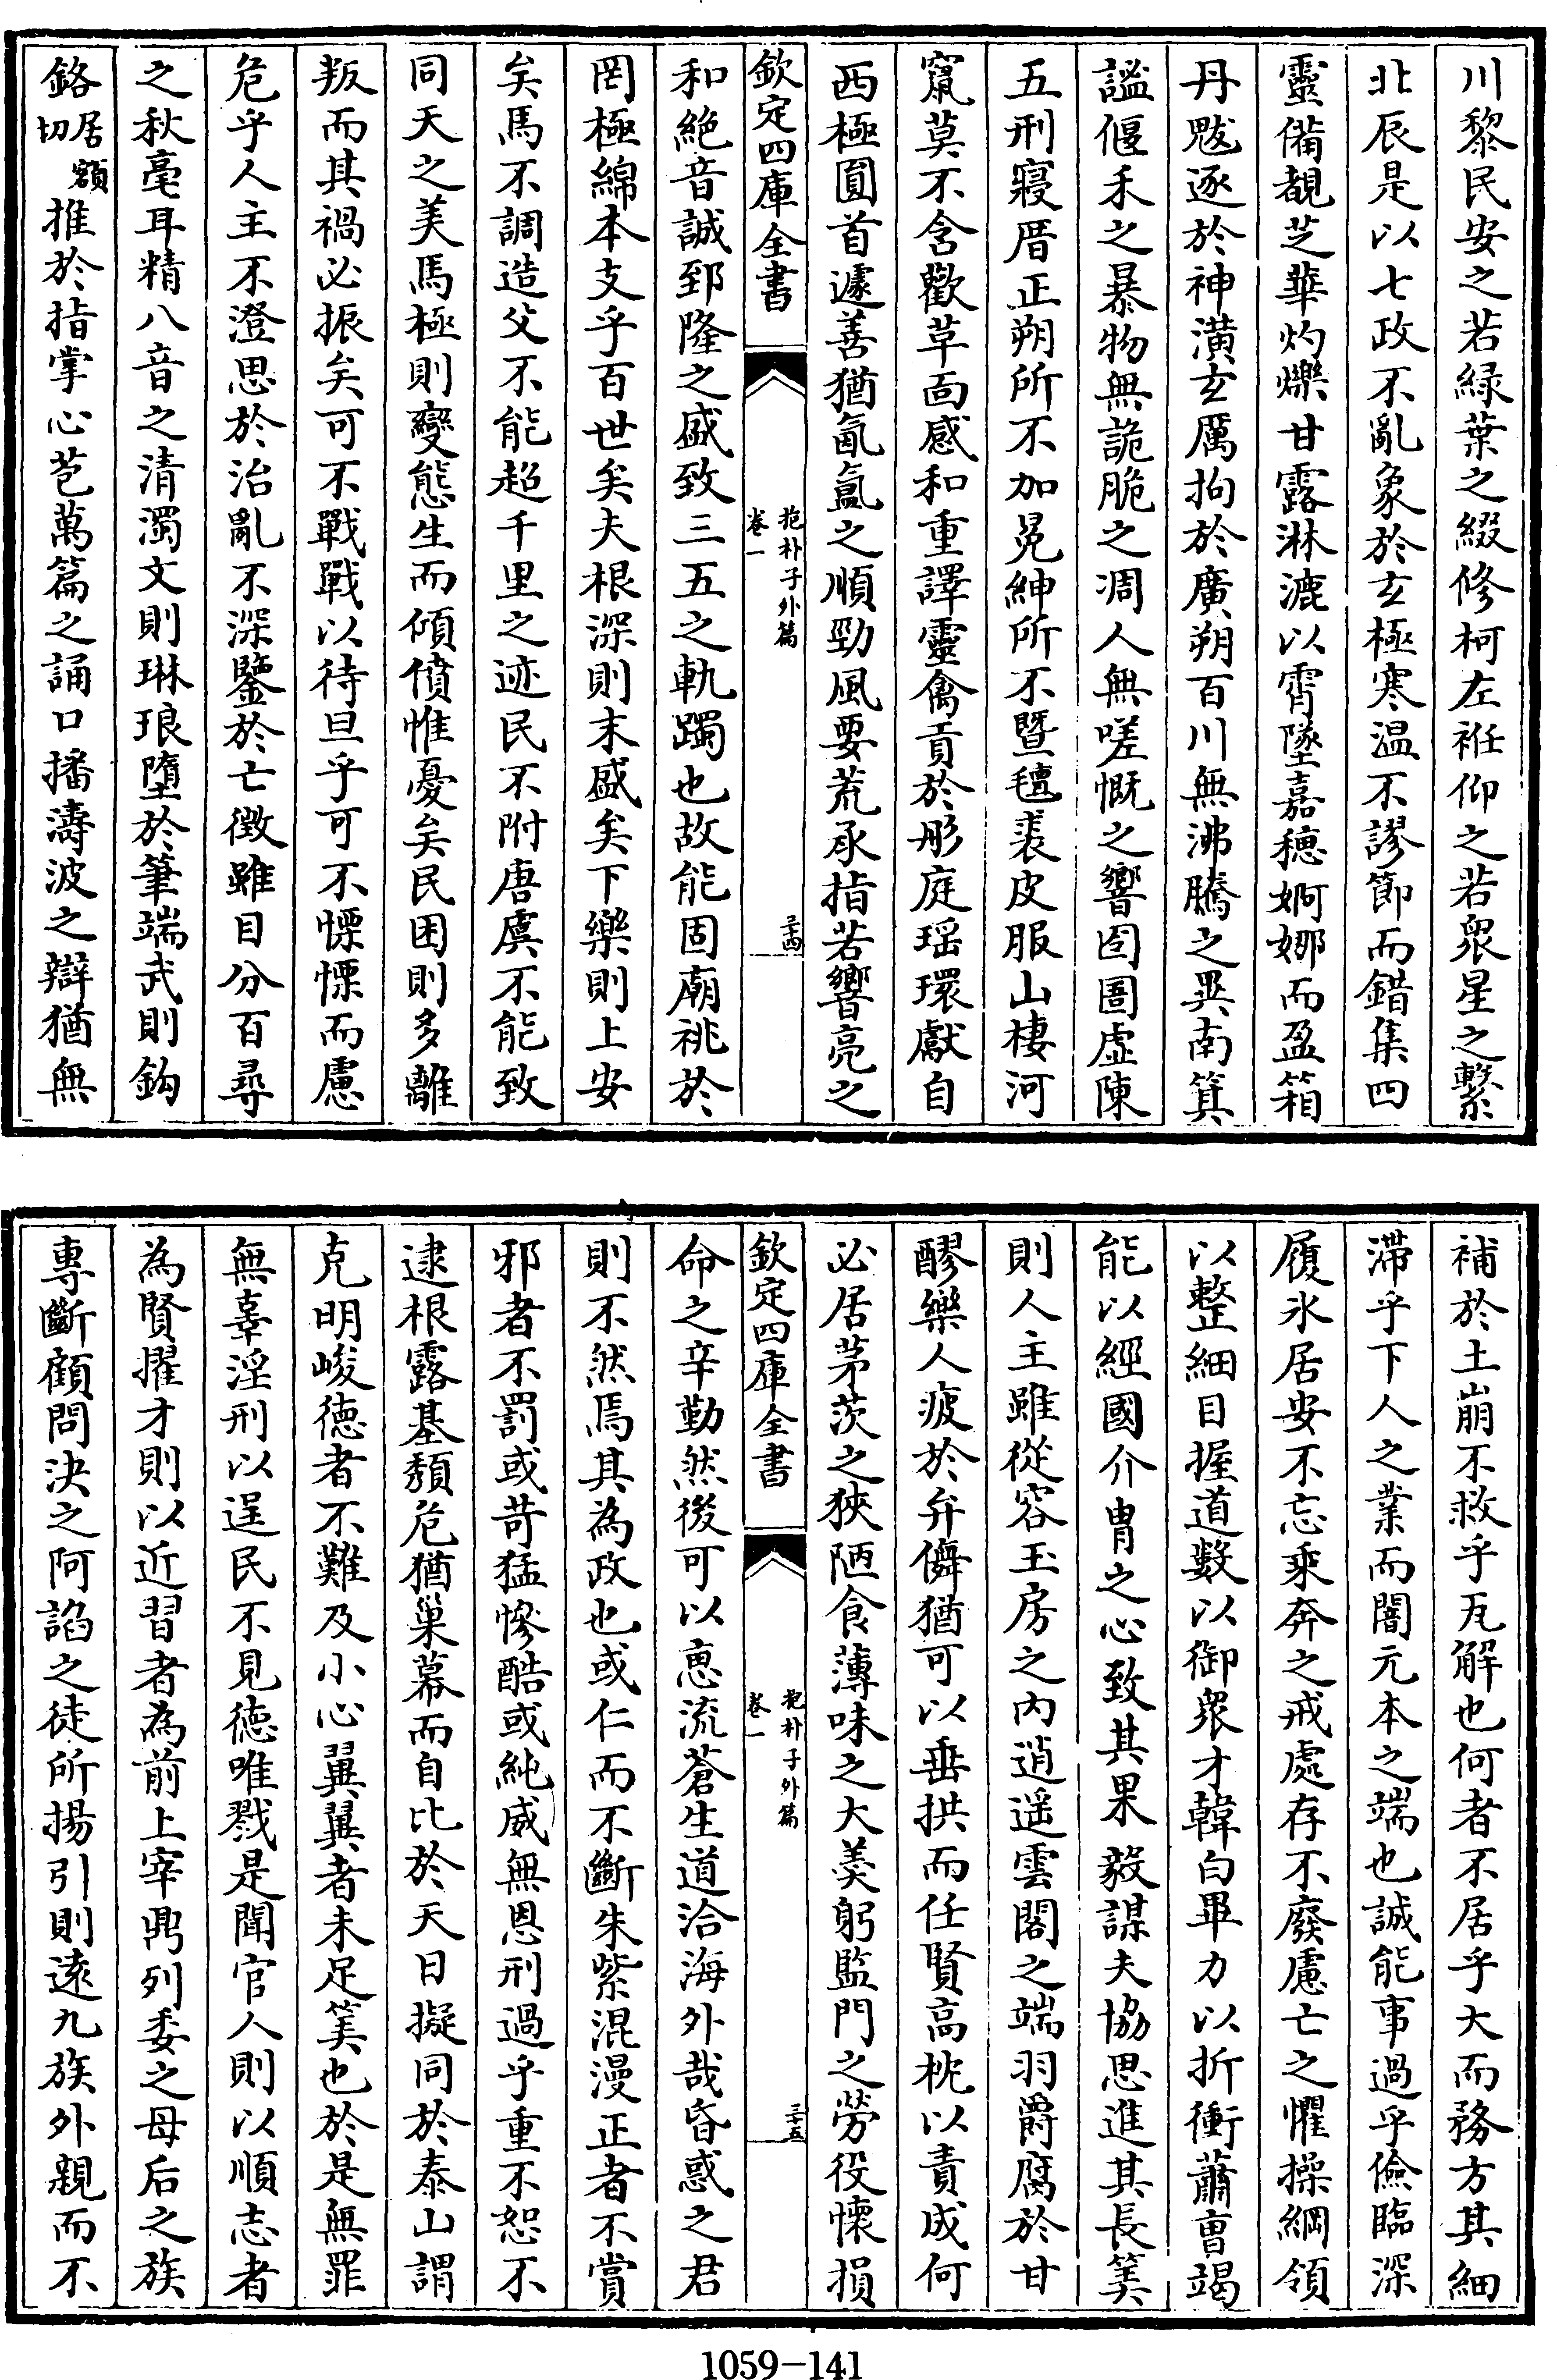 川黎民安之若緑葉之綴修柯左袵仰之若衆星之繫
北辰是以七政不亂象於玄極寒温不謬節而錯集四
靈備覩芝華灼爍甘露淋漉以霄墜嘉穂婀娜而盈箱
丹魃逐於神潢玄厲拘於廣朔百川無沸騰之異南箕
謐偃禾之暴物無詭脆之凋人無嗟慨之響囹圄虛陳
五刑寢厝正朔所不加冕紳所不暨氊裘皮服山棲河
竄莫不含歡草面感和重譯靈禽貢於彤庭瑶環獻自
西極圓首遽善猶氤氲之順勁風要荒承指若響亮之
欽定四庫全書
抱朴子外篇
卷一
三十四
和絶音誠郅隆之盛致三五之軌躅也故能固廟祧於
罔極綿本支乎百世矣夫根深則末盛矣下樂則上安
矣馬不調造父不能超千里之迹民不附唐虞不能致
同天之美馬極則變態生而傾僨惟憂矣民困則多離
叛而其禍必振矣可不戰戰以待旦乎可不慄慄而慮
危乎人主不澄思於治亂不深鑒於亡徴雖目分百尋
之秋毫耳精八音之清濁文則琳琅墮於筆端武則鈎
鉻居額切推於指掌心苞萬篇之誦口播濤波之辯猶無
補於土崩不救乎瓦解也何者不居乎大而務方其細
滯乎下人之業而闇元本之端也誠能事過乎儉臨深
履氷居安不忘乘奔之戒處存不廢慮亡之懼操綱領
以整細目握道數以御衆才韓白畢力以折衝蕭曺竭
能以經國介胄之心致其果毅謀夫協思進其長筭
則人主雖從容玉房之内逍遥雲閣之端羽爵腐於甘
醪樂人疲於弁儛猶可以垂拱而任賢高枕以責成何
必居茅茨之狹陋食薄味之大羮躬監門之勞役懐損
欽定四庫全書
抱朴子外篇
卷一
三十五
命之辛勤然後可以恵流蒼生道洽海外哉昏惑之君
則不然焉其為政也或仁而不斷朱紫混漫正者不賞
邪者不罰或苛猛慘酷或純威無恩刑過乎重不恕不
逮根露基頽危猶巢幕而自比於天日擬同於泰山謂
克明峻徳者不難及小心翼翼者未足筭也於是無罪
無辜淫刑以逞民不見徳唯戮是聞官人則以順志者
為賢擢才則以近習者為前上宰鼎列委之母后之族
專斷顧問決之阿諂之徒所揚引則逺九族外親而不
1059-141